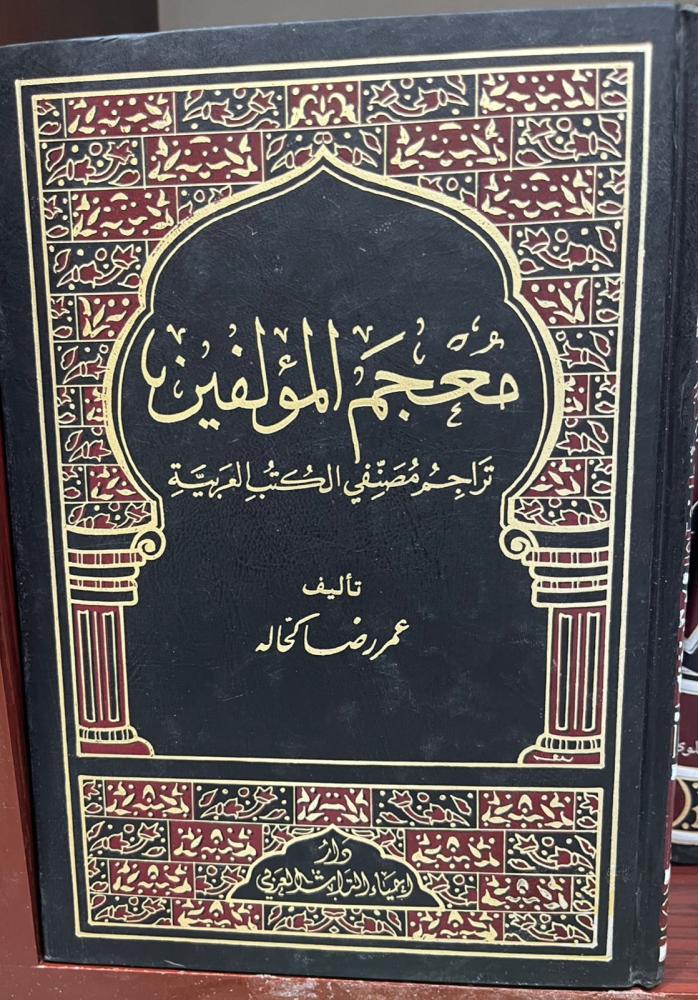 مُعْجَمُ المؤلفين
تَرَاجِمُ مُصَنِّفي الكُتُبِ العَرَبِيَّةِ
تأليف
عمر رضا كحّاله
دَارُ
إحياء التراث العربي